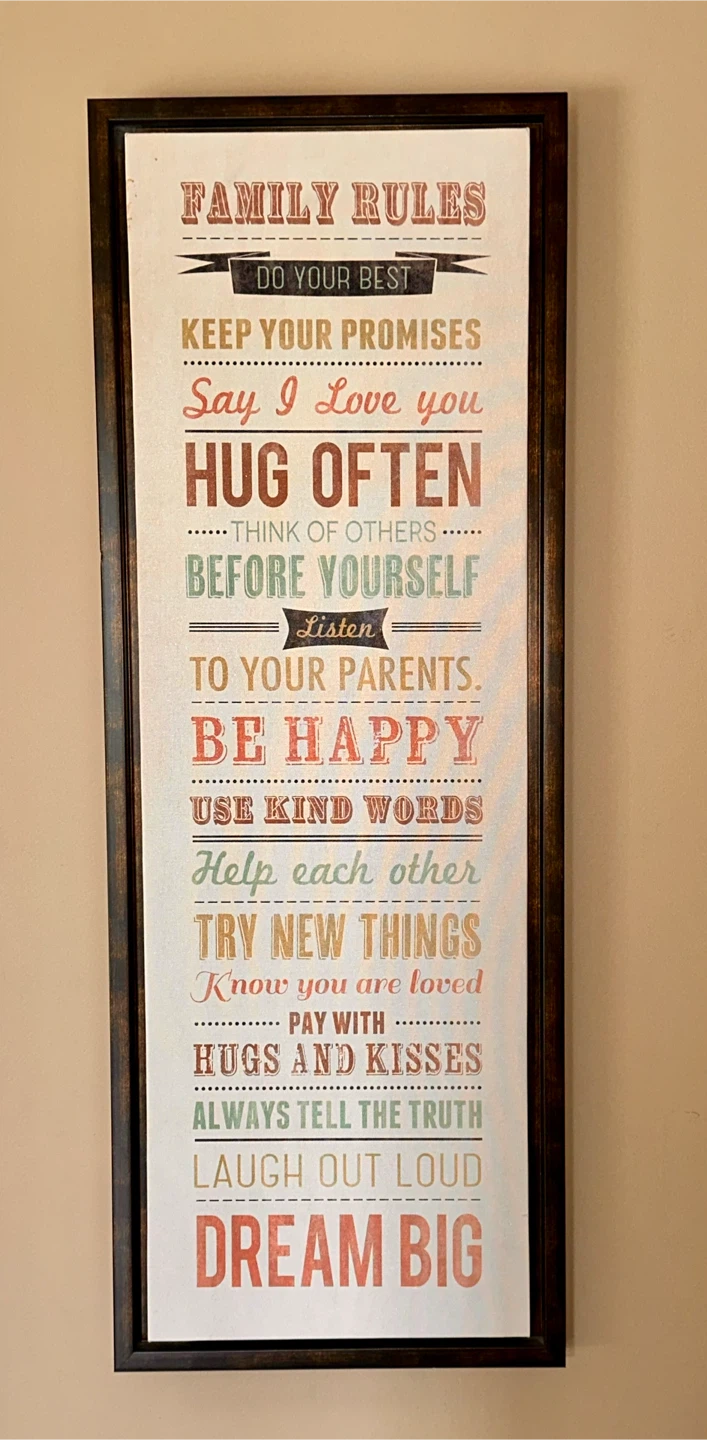 FAMILY RULES
DO YOUR BEST
KEEP YOUR PROMISES
Say I Love you
HUG OFTEN
THINK OF OTHERS
BEFORE YOURSELF
Listen
TO YOUR PARENTS.
BE HAPPY
USE KIND WORDS
Help each other
TRY NEW THINGS
Know you are loved
PAY WITH
HUGS AND KISSES
ALWAYS TELL THE TRUTH
LAUGH OUT LOUD
DREAM BIG